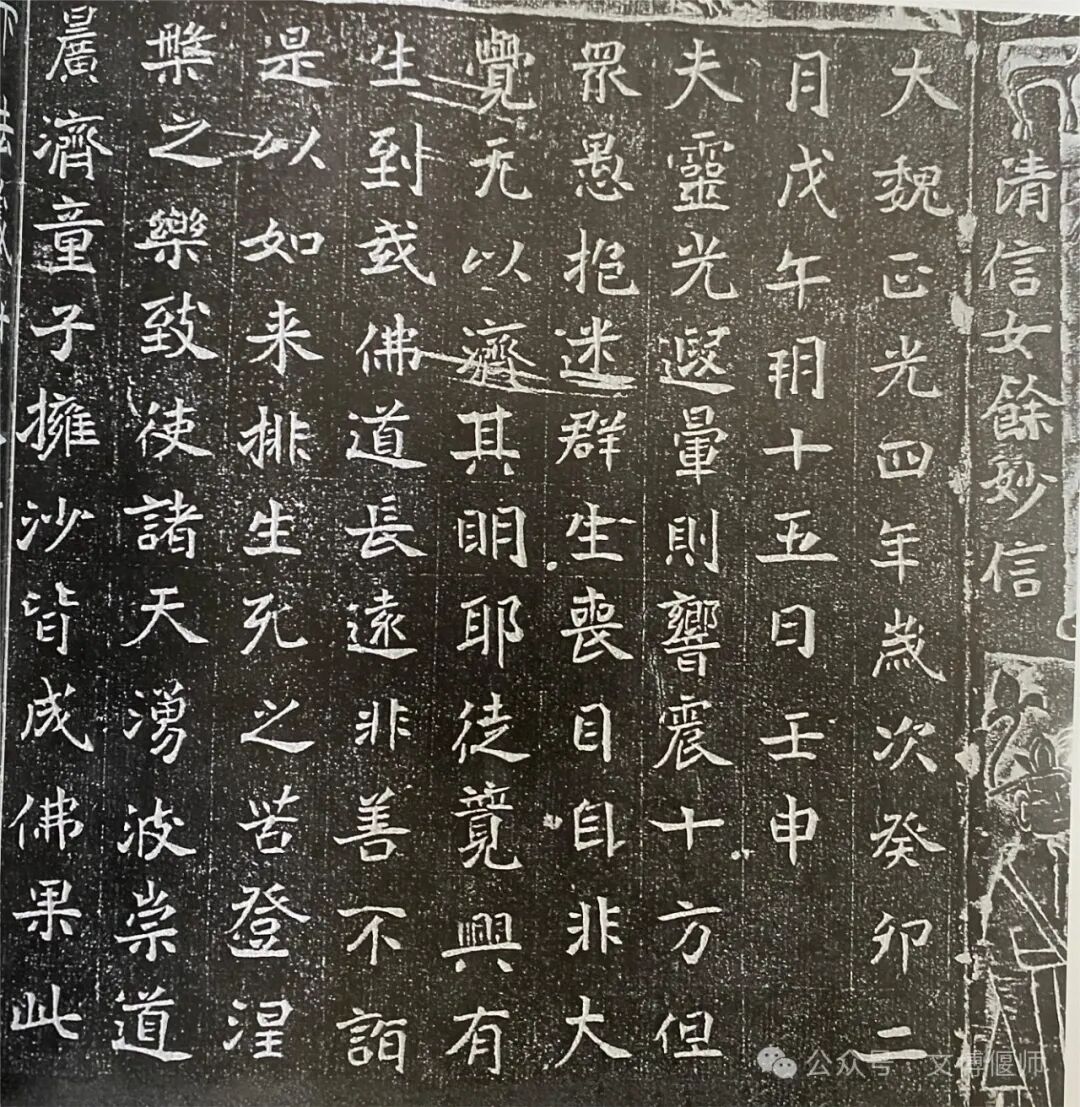 清信女餘妙信
大魏正光四年歲次癸卯二
月戊午朔十五日壬申
夫靈光遐暈則響震十方但
眾愚抱迷群生喪目自非大
覺无以濟其眀耶徒競興有
生到或佛道長遠非善不詣
是以如来排生死之苦登涅
槃之樂致使諸天湧波崇道
曠濟童子擁沙皆成佛果此
公众号·文博偃师